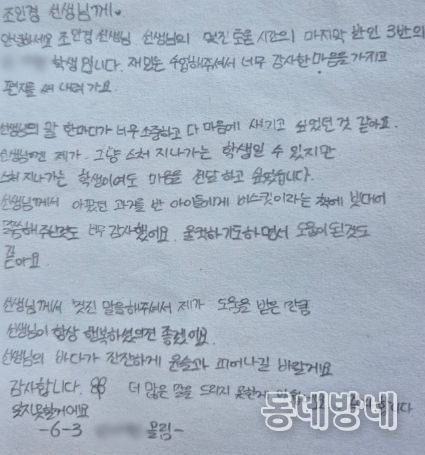 조인경 선생님께♥
안녕하세요 조인경 선생님 선생님의 멋진 도움 시간의 마지막 반인 3반의
학생입니다. 재밌는 수업해주셔서 너무 감사한 마음을 가지고
편지를 써 내려가요.
선생님의 말 한마디가 너무 소중하고 다 마음에 새기고 싶었던 것 같아요.
선생님껜 제가 그냥 스쳐 지나가는 학생일 수 있지만
스쳐 지나가는 학생이여도 마음을 전달하고 싶었습니다.
선생님께서 아팠던 과거를 반 아이들에게 비스킷이라는 책에 빗대어
말씀해주신것도 너무 감사했어요. 울컥하기도하면서 도움이 된것도
같아요
선생님께서 멋진 말을해주셔서 제가 도움을 받은 만큼
선생님이 항상 행복하셨으면 좋겠어요.
선생님의 바다가 잔잔하게 윤슬과 피어나길 바랄게요
감사합니다. 더 많은 말을 드리지 못한
잊지못할거에요
-6-3 올림-
동네방네